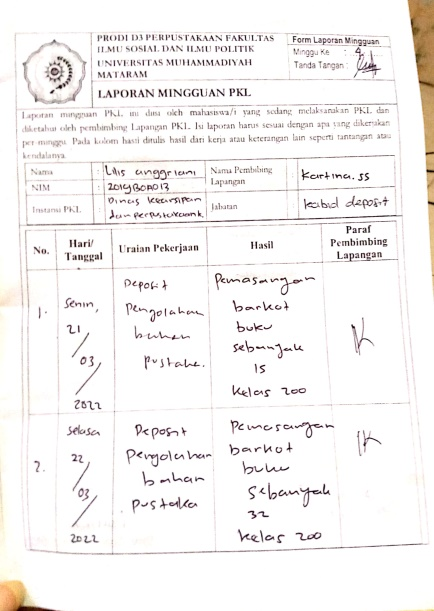 PRODI D3 PERPUSTAKAAN FAKULTAS
ILMU SOSIAL DAN ILMU POLITIK
UNIVERSITAS MUHAMMADIYAH
MATARAM
LAPORAN MINGGUAN PKL
Form Laporan Mingguan
Minggu Ke : 4
Tanda Tangan :
Laporan mingguan PKL ini diisi oleh mahasiswa/i yang sedang melaksanakan PKL dan
diketahui oleh pembimbing Lapangan PKL. Isi laporan harus sesuai dengan apa yang dikerjakan
per-minggu. Pada kolom hasil ditulis hasil dari kerja atau keterangan lain seperti tantangan atau
kendalanya.
Nama : Lilis anggriani
Nama Pembibing Lapangan : Kartina. SS
NIM : 2019B0A013
Instansi PKL : Dinas kearsipan
dan perpustakaan
Jabatan : kabid deposit
No. Hari/ Tanggal Uraian Pekerjaan Hasil Paraf Pembimbing Lapangan
1. Senin, 21/03/2022
Deposit
Pengolahan
bahan
pustaka.
Pemasangan
barkot
buku
sebanyak
15
kelas 200
2. Selasa 22/03/2022
Deposit
Pengolahan
bahan
pustaka
Pemasangan
barkot
buku
Sebanyak
32
kelas 200